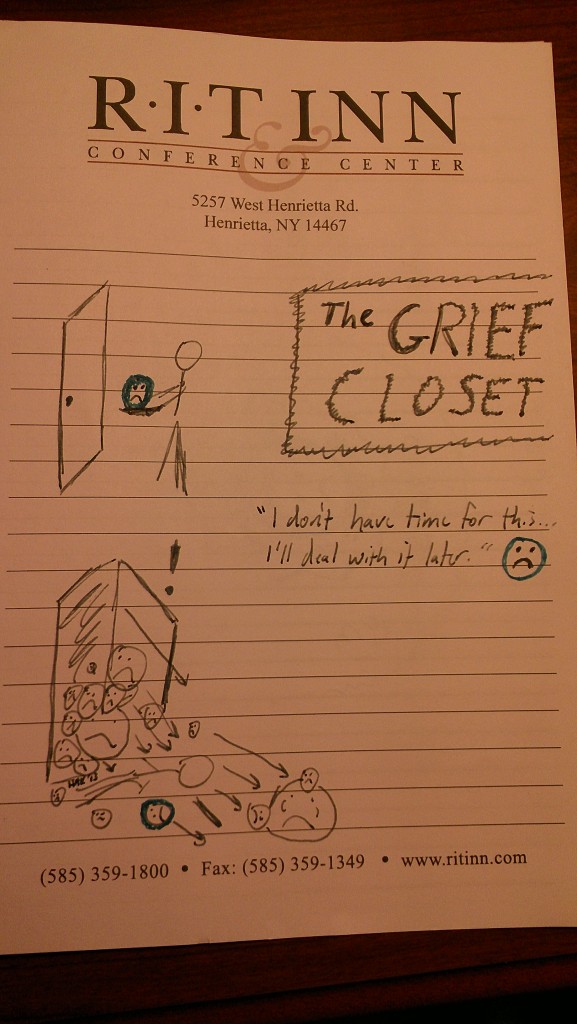 R·I·T INN
&
CONFERENCE CENTER
5257 West Henrietta Rd.
Henrietta, NY 14467
The GRIEF
CLOSET
"I don't have time for this...
I'll deal with it later."
!
(585) 359-1800 • Fax: (585) 359-1349 • www.ritinn.com